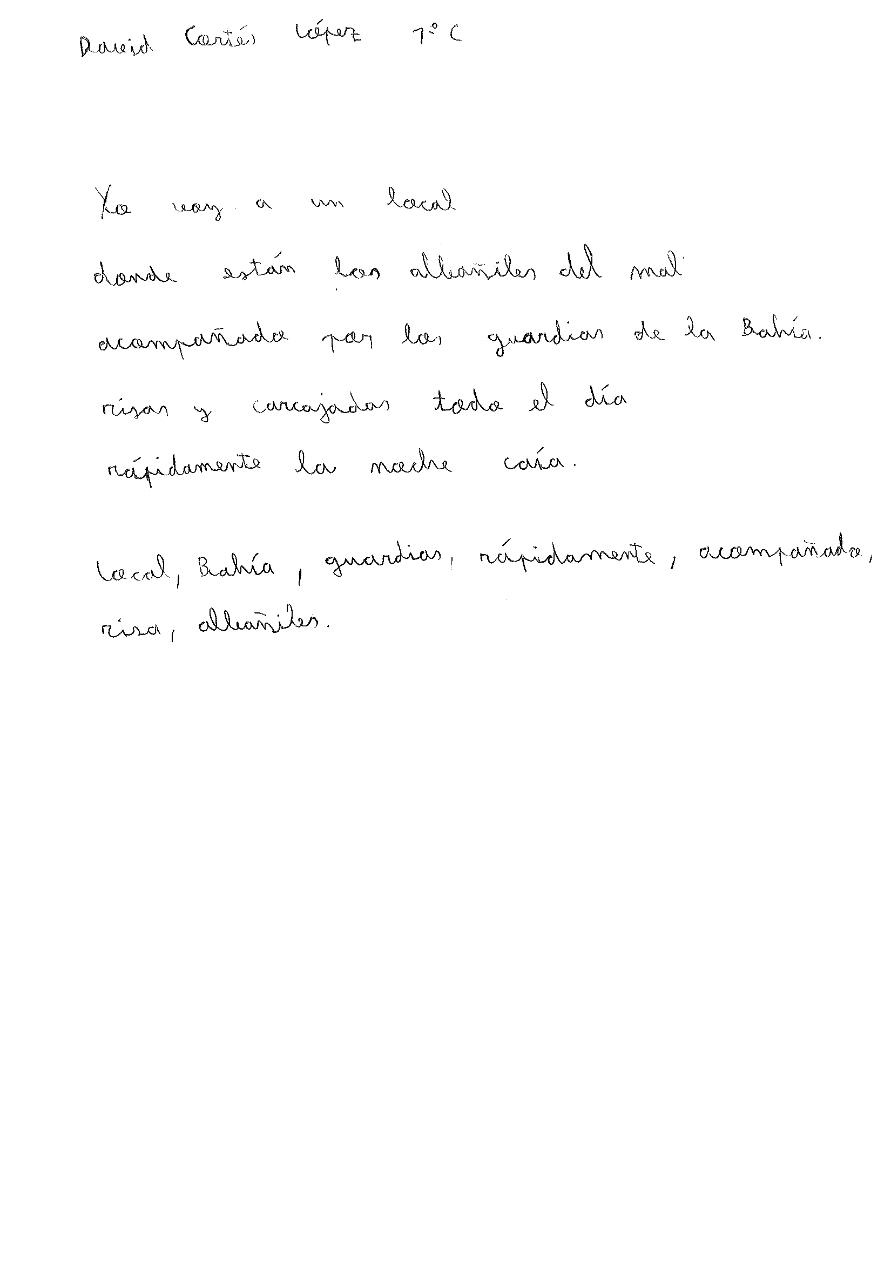 David Cortés López 1º C
Yo voy a un local
donde están los albañiles del mal
acompañado por los guardias de la Bahía.
risas y carcajadas todo el día
rápidamente la noche caía.
Local, Bahía, guardias, rápidamente, acompañado,
risa, albañiles.